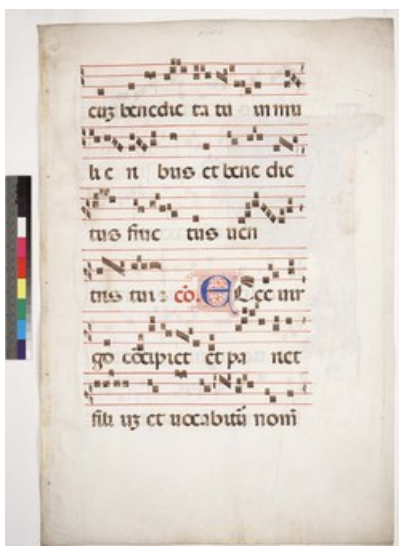 cuȝ benedic ta tu in mu
li e ri bus et bene dic
tus fruc tus uen
tris tui : cō. Ecce uir
go cōcipiet et pa riet
fili uȝ et uocabitū nom̄